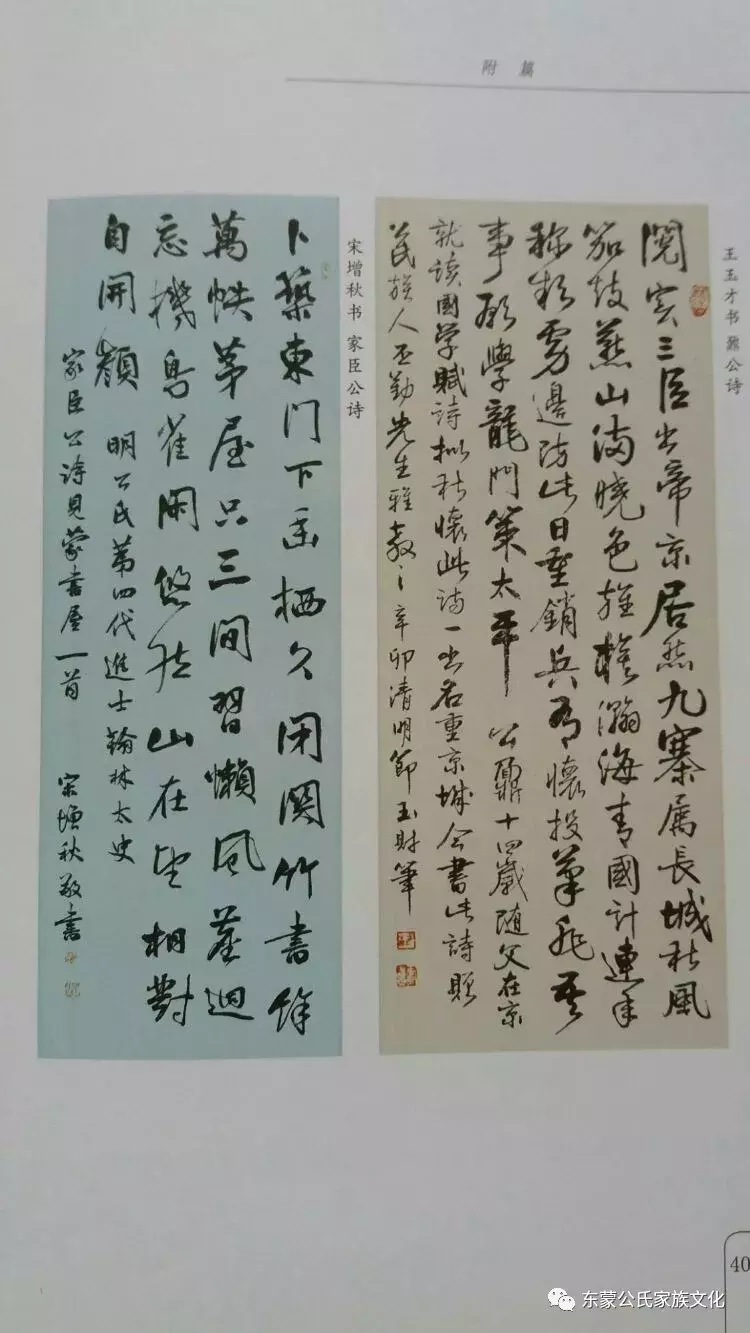 附 篇
王玉才书 鼐公诗
閱实三臣出帝京居然九寨属長城秋風
笳鼓燕山满曉色旌旗瀚海青國計連年
称 虏邊防此日重銷兵有懷投筆非吾
事願學龍門策太平 公鼐十四歲随父在京
就读國学賦詩拟秋懷此诗一出名重京城今書此詩贈
公氏族人丕勤先生雅教之辛卯清明節玉財筆
宋增秋书 家臣公诗
卜築東門下幽栖久闭関竹書馀
萬帙茅屋只三间習懶風塵迥
忘機鳥雀閑悠然山在望相對
自開顏 明公氏第四代進士翰林太史
家臣公诗見蒙書屋一首 宋增秋敬書
40
东蒙公氏家族文化